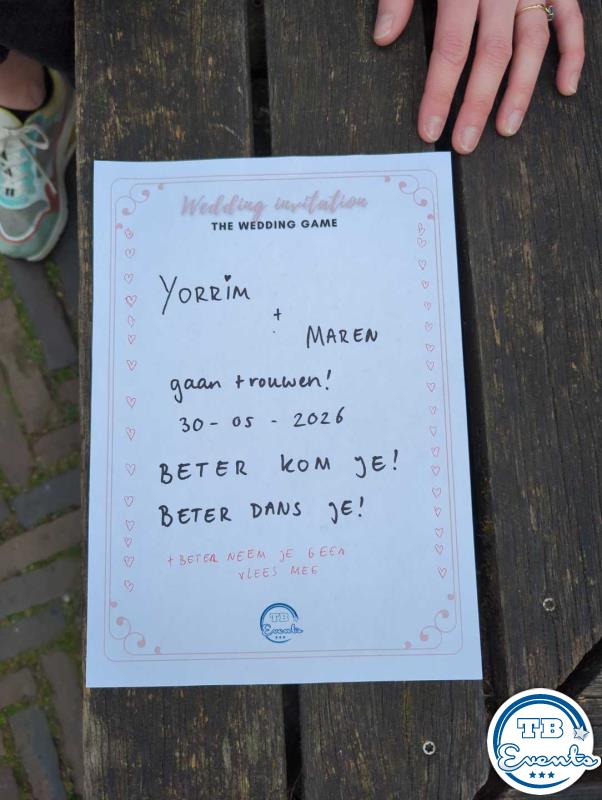 Wedding invitation
THE WEDDING GAME
YORRIM
+
MAREN
gaan trouwen!
30 - 05 - 2026
BETER KOM JE!
BETER DANS JE!
+ BETER NEEM JE GEEN
VLEES MEE
TB
Events
TB
Events